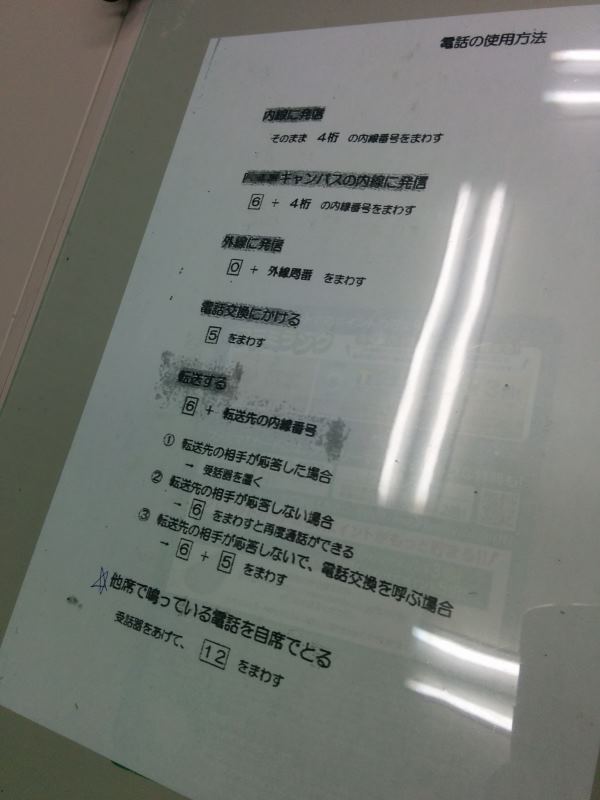 電話の使用方法
内線に発信
そのまま 4桁 の内線番号をまわす
キャンパスの内線に発信
6 + 4桁 の内線番号をまわす
外線に発信
0 + 外線局番 をまわす
電話交換にかける
5 をまわす
転送する
6 + 転送先の内線番号
① 転送先の相手が応答した場合
→ 受話器を置く
② 転送先の相手が応答しない場合
→ 6 をまわすと再度通話ができる
③ 転送先の相手が応答しないで、電話交換を呼ぶ場合
→ 6 + 5 をまわす
☆他席で鳴っている電話を自席でとる
受話器をあげて、 12 をまわす